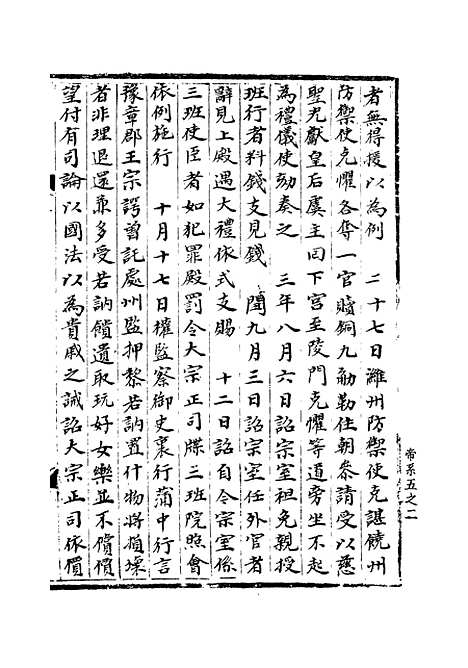 者無得援以為例　二十七日濰州防禦使克諶饒州
防禦使克懼各奪一官贖銅九觔勒住朝叅請受以慈
聖光獻皇后虞主回下宮至陵門克懼等道旁坐不起
為禮儀使劾奏之　三年八月六日詔宗室袒免親授
班行者料錢支見錢　閏九月三日詔宗室任外官者
辭見上殿遇大禮依式支賜　十二日詔自今宗室係
三班使臣者如犯罪殿罰令大宗正司牒三班院照會
依例施行　十月十七日權監察御史裏行蒲中行言
豫章郡王宗諤曽託處州監押黎若訥置什物將損壞
者非理退還兼多受若訥饋遺取玩好女樂並不償價
望付有司論以國法以為貴戚之誡詔大宗正司依價
帝系五之二